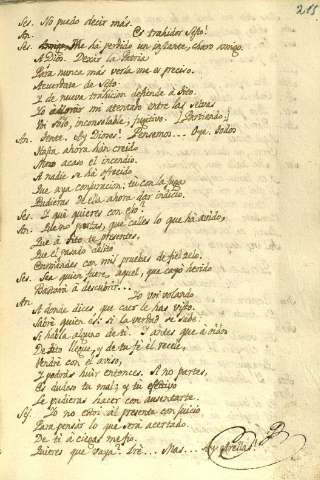 215
Ses. No puedo decir más.
An. Es trahidor Sesto!
Ses. Me ha perdido un instante, charo amigo.
A Dios. Dexar la Patria
Para nunca más verla me es preciso.
Acuerdate de Sesto.
Y de nueva trahicion defiende à Tito.
Yo à llorar mi atentado entre las selvas
Voi solo, inconsolable, fugitivo. (Partiendo.)
An. Tente. Ay Dioses! Pensemos... Oye. Todos
Hasta ahora han creido
Mero acaso el incendio.
A nadie se ha ofrecido
Que aya conjuracion: tù con la fuga
Pudieras de ella ahora dar indicio.
Ses. Y què quieres con eso?
An. Que no partas, que calles lo que ha avido,
Que à Tito te presentes,
Que el pasado delito
Enmiendes con mil pruebas de fiel zelo.
Ses. Sea quien fuere, aquel, que cayò herido
Bastarà à descubrir...
An. Yo voi volando
A donde dices, que caer le has visto.
Sabrè quien es: si la verdad se sabe:
Si habla alguno de ti. Y antes que a manos
De Tito llegue, y de tu fè el recelo,
Vendrè con el aviso,
Y podràs huir entonces. Si no partes,
Es dudoso tu mal; y tu efectivo
Le pudieras hacer con ausentarte.
Ses. Yo no estoi al presente con juicio
Para pensar lo que serà acertado.
De ti à ciegas me fio.
Quieres que vaya? Irè... Mas... Ay estrellas!